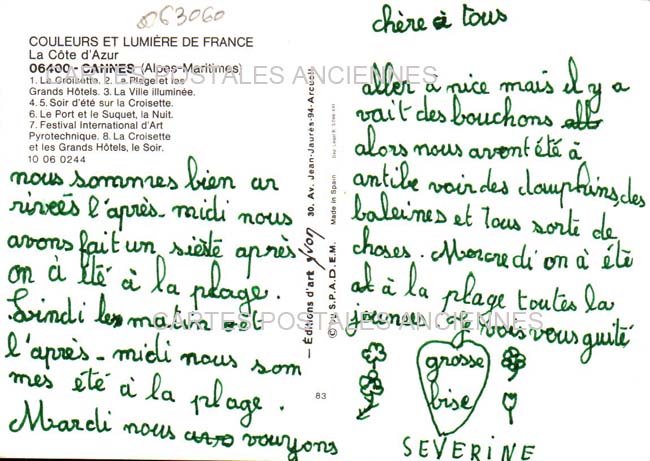 063060
COULEURS ET LUMIÈRE DE FRANCE
La Côte d'Azur
06400 - CANNES (Alpes-Maritimes)
1. La Croisette. 2. La Plage et les
Grands Hôtels. 3. La Ville illuminée.
4.5. Soir d'été sur la Croisette.
6. Le Port et le Suquet, la Nuit.
7. Festival International d'Art
Pyrotechnique. 8. La Croisette
et les Grands Hôtels, le Soir.
10 06 0244
CARTES POSTALES ANCIENNES
chère à tous
nous sommes bien ar
rivées l'après-midi nous
avons fait un siesté après
on à été à la plage.
Lindi le matin et
l'après-midi nous som
mes été à la plage.
Mardi nous vouyons
aller à nice mais il y a
vait des bouchons
alors nous avont été à
antibe voir des dauphins, des
baleines et tous sorte de
choses. Mercredi on à été
à la plage toutes la
journee je vois vous quité
grosse
bise
SEVERINE
— Éditions d'art yvon 30, Av. Jean-Jaurès-94-Arcueil
© by S.P.A.D.E.M. Made in Spain
83
CARTES POSTALES ANCIENNES